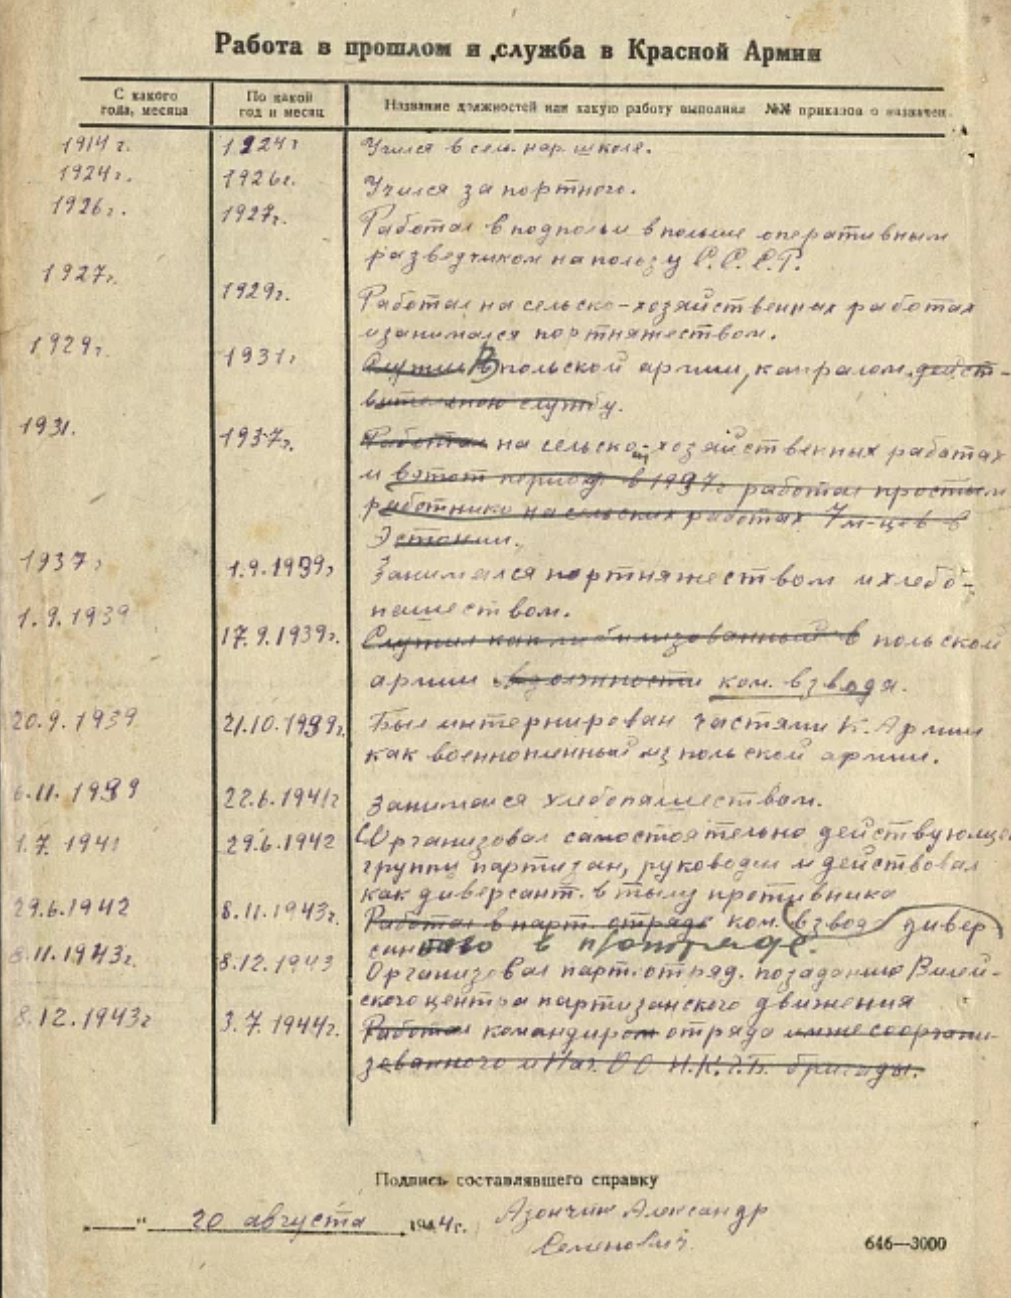 Работа в прошлом и служба в Красной Армии
С какого года, месяца
По какой год и месяц
Название должностей или какую работу выполнял №№ приказов о назначен.
1914 г. 1924 г Учился в сельнар. школе.
1924 г. 1926 г. Учился за портного.
1926 г. 1927 г. Работал в подпольи в польше оперативным
разведчиком на ползу С.С.С.Р.
1927 г. 1929 г. Работал на сельско-хозяйственных работах
и занимался портняжеством.
1929 г. 1931 г Служил В польской армии, капралом дейст-
вительною службу.
1931. 1937 г. Работал на сельско-хозяйственных работах
и в этот период в 1937 г работал простым
работником на сельских работах 7 м-цев в
Эстонии.
1937 г 1.9.1939 г Занимался портняжеством и хлебо-
пашеством.
1.9.1939 17.9.1939 г. Служил как мобилизованный в польской
армии в должности ком. взвода.
20.9.1939 21.10.1939 г. Был интернирован частями К. Армии
как военнопленный из польской армии.
6.11.1939 22.6.1941 г Занимался хлебопашеством.
1.7.1941 29.6.1942 Организовал самостоятельно действующе
группу партизан, руководил и действовал
как диверсант. в тылу противника
29.6.1942 8.11.1943 г. Работал в парт. отряде ком. взвода дивер
сан в п/отряде.
8.11.1943 г. 8.12.1943 Организовал парт. отряд. по заданию Вилей-
ского центра партизанского движения
8.12.1943 г 3.7.1944 г. Работал командиром отряда мнже сооргани-
зованного и Нач. О О Н.К.Г.Б. бригады.
Подпись составлявшего справку
„——“ 20 августа 1944 г. Азончик Александр
Семенович
646—3000